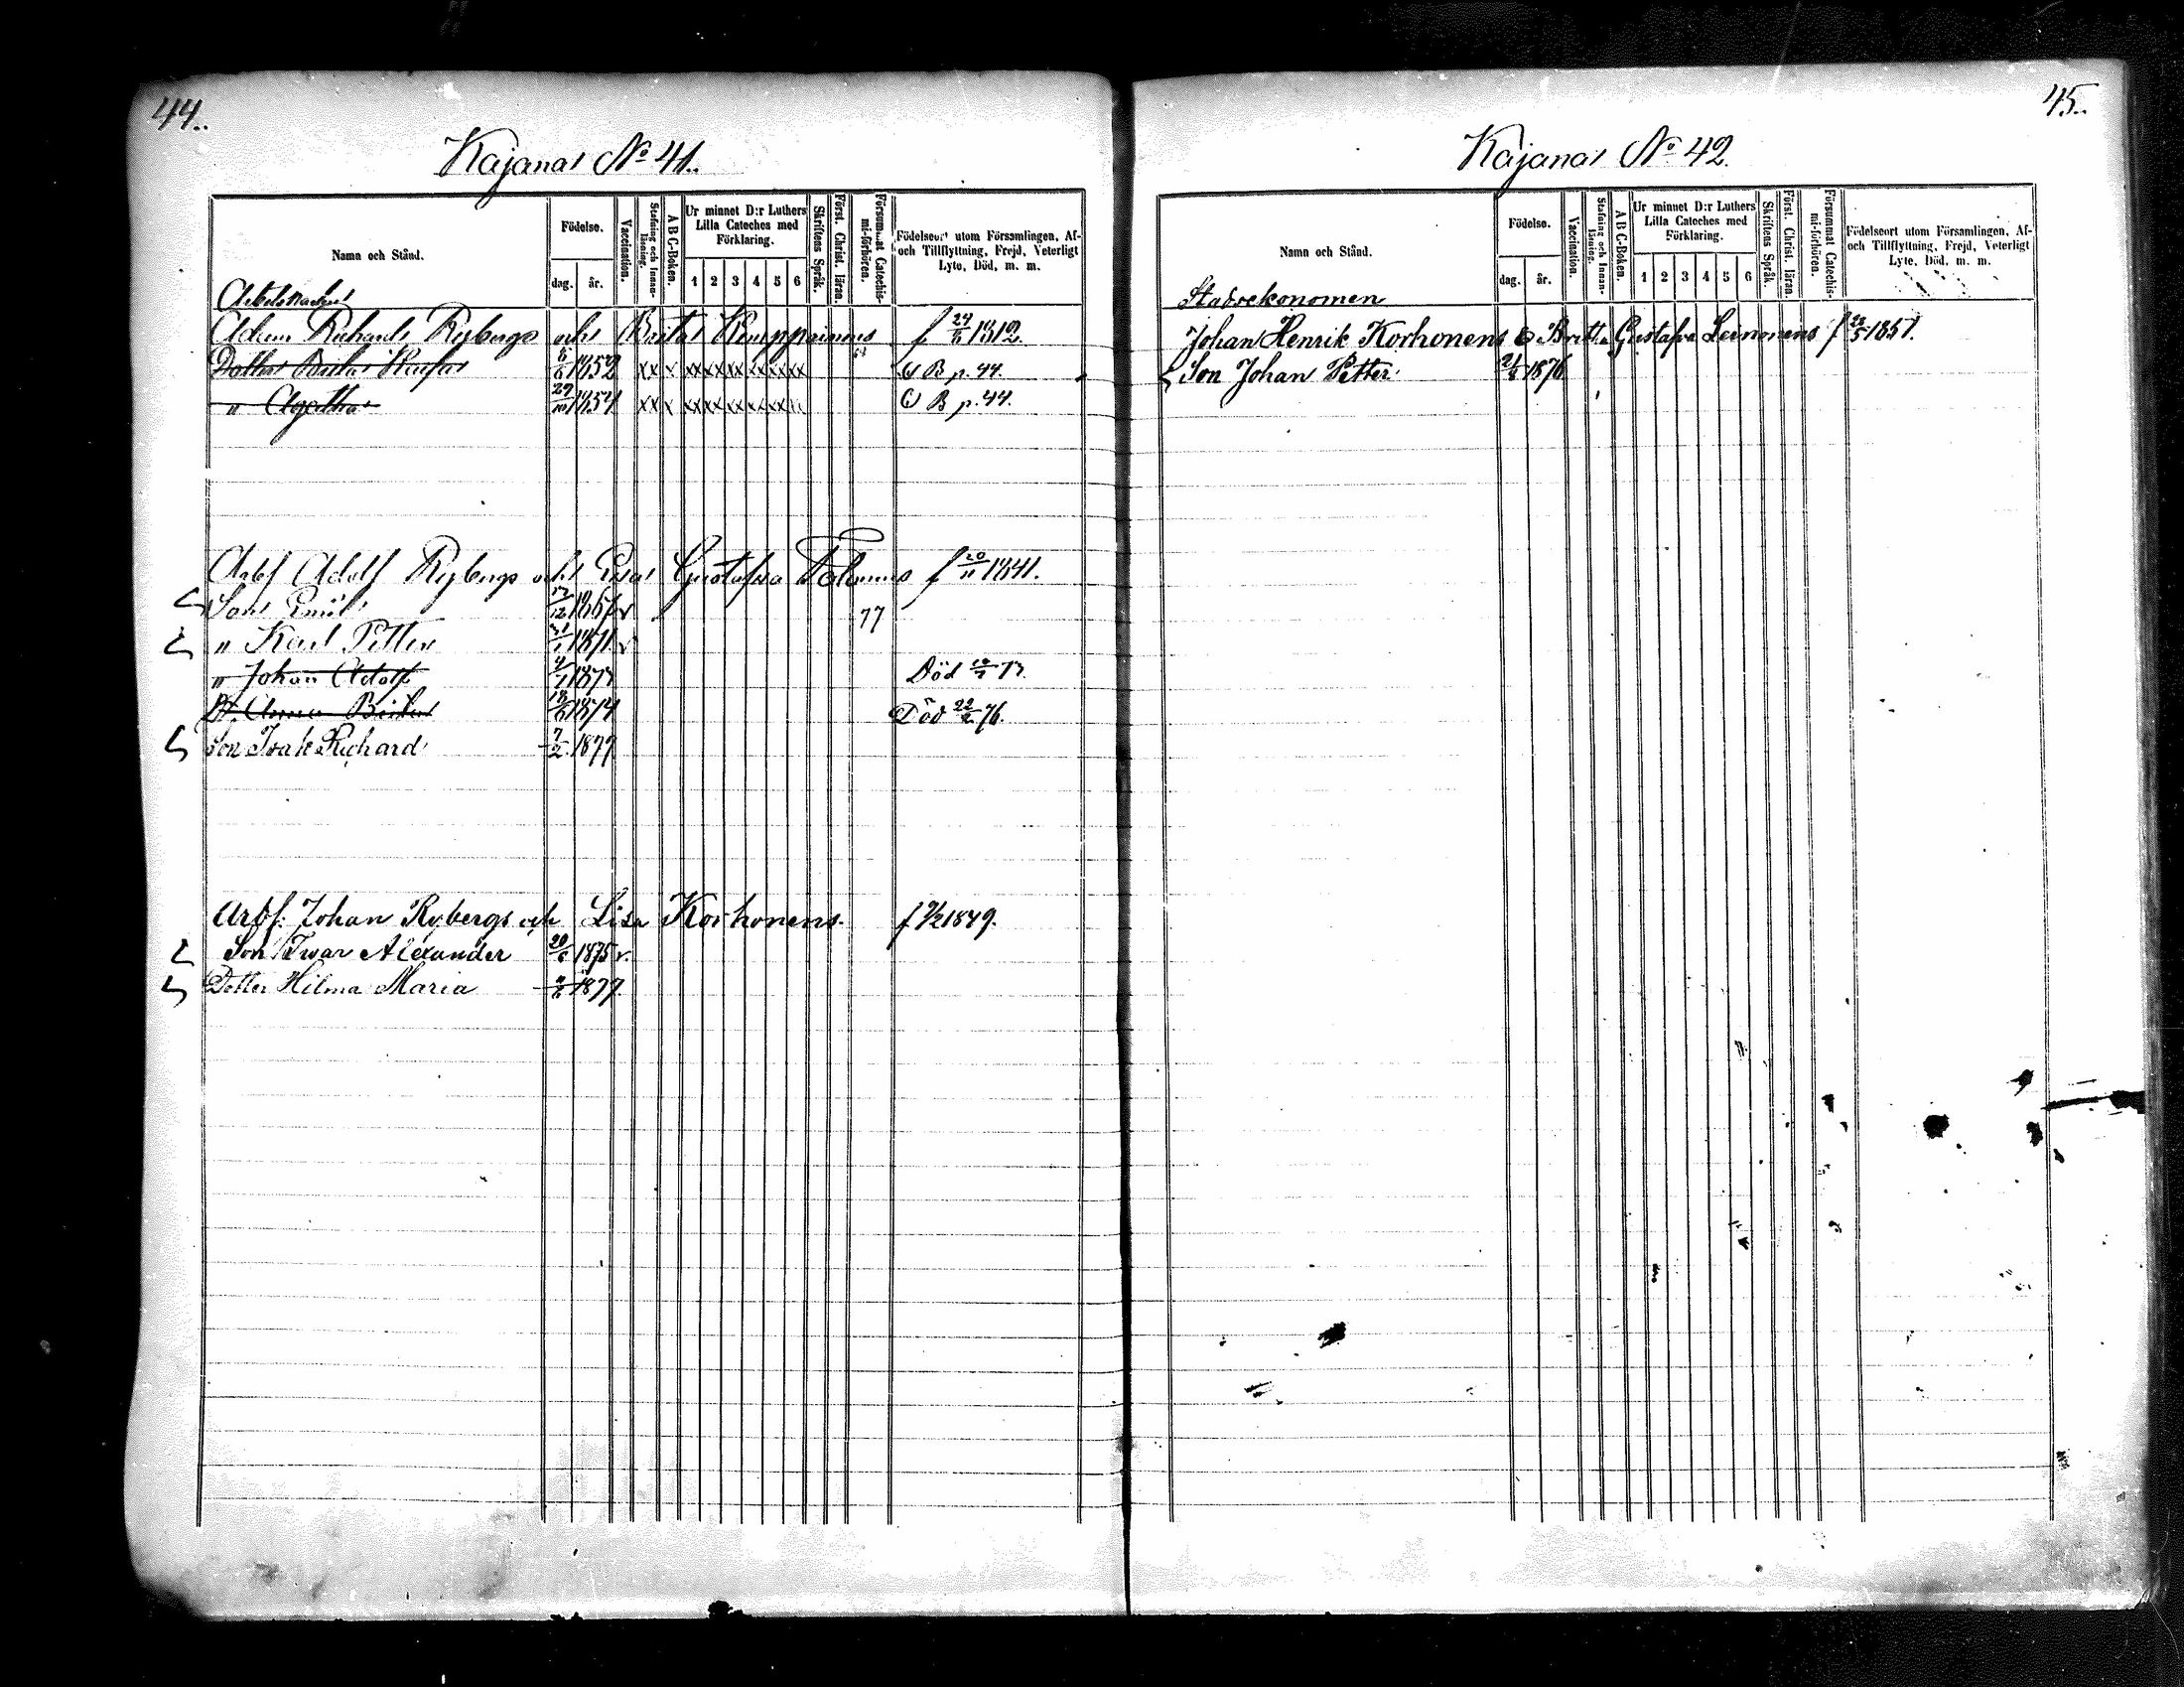 44.
Kajana No 41.
Namn och Stånd.
Födelse.
dag. år.
Vaccination.
Stafning och Innan-läsning.
A B C-Boken.
Ur minnet D:r Luthers Lilla Cateches med Förklaring.
1 2 3 4 5 6
Skriftens Språk.
Först. Christ. läran.
Försummat Catechis-mi-förhören.
Födelseort utom Församlingen, Af- och Tillflyttning, Frejd, Veterligt Lyte, Död, m. m.
Arbetskarlen
Adam Richard Rybergs och Brita Kemppainens f 1812.
Dotter Brita 1852 xx x xx xx xx xx xx xx B p. 44.
" Agatha 29/10 1854 xx x xx xx xx xx xx B p. 44.
Arbk Adolf Rybergs och Gustafva f 20/11 1841.
Son Emil 1867 v 77
" Karl Petter 1871 v
" Johan Adolf 1873 Död 73.
D. Anna Brita 1874 Död 22/2 76.
Son Isak Richard 7/2 1877
Arbk: Johan Rybergs och Lisa Korhonens. f 1849.
Son Iwar Alexander 20/6 1875 v.
Dotter Hilma Maria 1877.
45.
Kajana No 42.
Namn och Stånd.
Födelse.
dag. år.
Vaccination.
Stafning och Innan-läsning.
A B C-Boken.
Ur minnet D:r Luthers Lilla Cateches med Förklaring.
1 2 3 4 5 6
Skriftens Språk.
Först. Christ. läran.
Försummat Catechis-mi-förhören.
Födelseort utom Församlingen, Af- och Tillflyttning, Frejd, Veterligt Lyte, Död, m. m.
Stadsekonomen
Johan Henrik Korhonens o Britha Gustafva Leinonens f 1851.
Son Johan Petter 1876